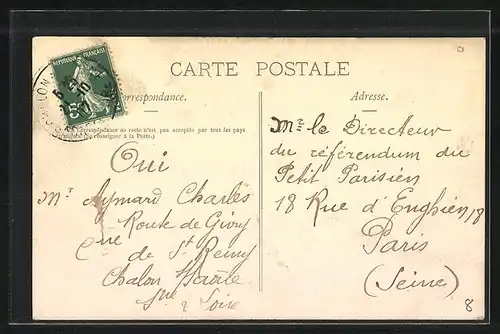 RÉPUBLIQUE FRANÇAISE
CARTE POSTALE
Correspondance.
Adresse.
Correspondance au recto n'est pas acceptée par tous les pays
(se renseigner à la Poste.)
Oui
Mr Aymard Charles
Route de Givry
Cne de St Remy
Chalon Saône
Sne & Loire
Mr le Directeur
du référendum du
Petit Parisien
18 Rue d'Enghien, 18
Paris
(Seine)
8